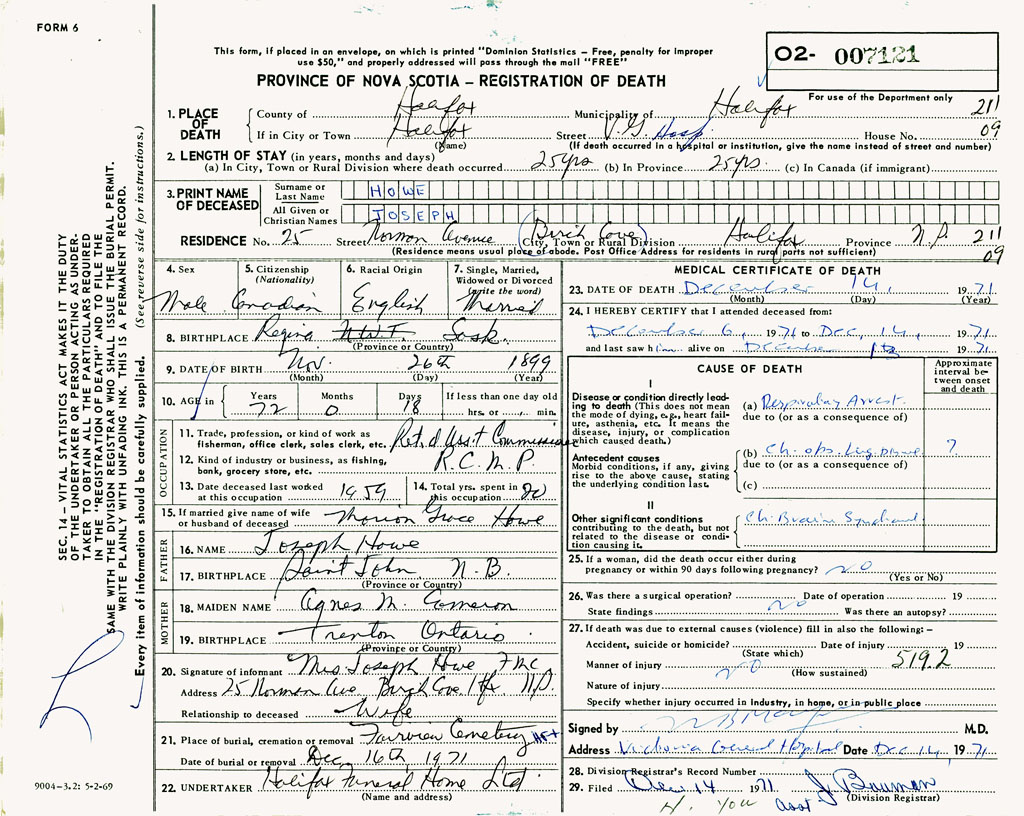 FORM 6
This form, if placed in an envelope, on which is printed "Dominion Statistics – Free, penalty for improper
use $50," and properly addressed will pass through the mail "FREE"
PROVINCE OF NOVA SCOTIA – REGISTRATION OF DEATH
02- 007121
For use of the Department only
211
09
1. PLACE OF DEATH
County of Halifax Municipality of Halifax
If in City or Town Halifax Street V.G. Hosp. House No.
(Name) (If death occurred in a hospital or institution, give the name instead of street and number)
2. LENGTH OF STAY (in years, months and days)
(a) In City, Town or Rural Division where death occurred 25 yrs (b) In Province 25 yrs. (c) In Canada (if immigrant)
3. PRINT NAME OF DECEASED
Surname or Last Name HOWE
All Given or Christian Names JOSEPH
RESIDENCE No. 25 Street Norman Avenue (Birch Cove) City, Town or Rural Division Halifax Province N.S. 211
(Residence means usual place of abode. Post Office Address for residents in rural ports not sufficient) 09
4. Sex Male
5. Citizenship (Nationality) Canadian
6. Racial Origin English
7. Single, Married, Widowed or Divorced (write the word) Married
8. BIRTHPLACE Regina N.W.T. Sask.
(Province or Country)
9. DATE OF BIRTH Nov. 26th 1899
(Month) (Day) (Year)
10. AGE in Years 72 Months 0 Days 18 If less than one day old hrs. or min.
OCCUPATION
11. Trade, profession, or kind of work as fisherman, office clerk, sales clerk, etc. Ret'd Ass't Commissioner
12. Kind of industry or business, as fishing, bank, grocery store, etc. R.C.M.P.
13. Date deceased last worked at this occupation 1959
14. Total yrs. spent in this occupation 20
15. If married give name of wife or husband of deceased Marion Grace Howe
FATHER
16. NAME Joseph Howe
17. BIRTHPLACE Saint John N.B.
(Province or Country)
MOTHER
18. MAIDEN NAME Agnes M. Cameron
19. BIRTHPLACE Trenton Ontario
(Province or Country)
20. Signature of informant Mrs. Joseph Howe
Address 25 Norman Ave Birch Cove Hfx N.S.
Relationship to deceased Wife
21. Place of burial, cremation or removal Fairview Cemetery Hfx
Date of burial or removal Dec 16th, 1971
22. UNDERTAKER Halifax Funeral Home Ltd
(Name and address)
MEDICAL CERTIFICATE OF DEATH
23. DATE OF DEATH December 14, 1971
(Month) (Day) (Year)
24. I HEREBY CERTIFY that I attended deceased from:
December 6, 1971 to Dec, 14, 1971
and last saw him alive on December 1971
CAUSE OF DEATH
Approximate interval between onset and death
I
Disease or condition directly leading to death (This does not mean the mode of dying, e.g., heart failure, asthenia, etc. It means the disease, injury, or complication which caused death.)
(a) Respiratory Arrest.
due to (or as a consequence of)
Antecedent causes
Morbid conditions, if any, giving rise to the above cause, stating the underlying condition last.
(b) Ch. obs. lung disease ?
due to (or as a consequence of)
(c)
II
Other significant conditions contributing to the death, but not related to the disease or condition causing it.
Ch. Brain Syndrome
25. If a woman, did the death occur either during
pregnancy or within 90 days following pregnancy? no
(Yes or No)
26. Was there a surgical operation? no Date of operation 19
State findings Was there an autopsy?
27. If death was due to external causes (violence) fill in also the following: –
Accident, suicide or homicide? Date of injury 19
(State which) 519.2
Manner of injury no (How sustained)
Nature of injury
Specify whether injury occurred in Industry, in home, or in public place
Signed by M.D.
Address Victoria General Hospital Date Dec 14, 1971
28. Division Registrar's Record Number
29. Filed Dec 14 1971 J. Bauman
asst (Division Registrar)
SEC. 14 – VITAL STATISTICS ACT MAKES IT THE DUTY
OF THE UNDERTAKER OR PERSON ACTING AS UNDER-
TAKER TO OBTAIN ALL THE PARTICULARS REQUIRED
IN THE "REGISTRATION OF DEATH" AND TO FILE THE
SAME WITH THE DIVISION REGISTRAR WHO SHALL ISSUE THE BURIAL PERMIT.
WRITE PLAINLY WITH UNFADING INK. THIS IS A PERMANENT RECORD.
Every item of information should be carefully supplied. (See reverse side for instructions.)
9004-3.2: 5-2-69